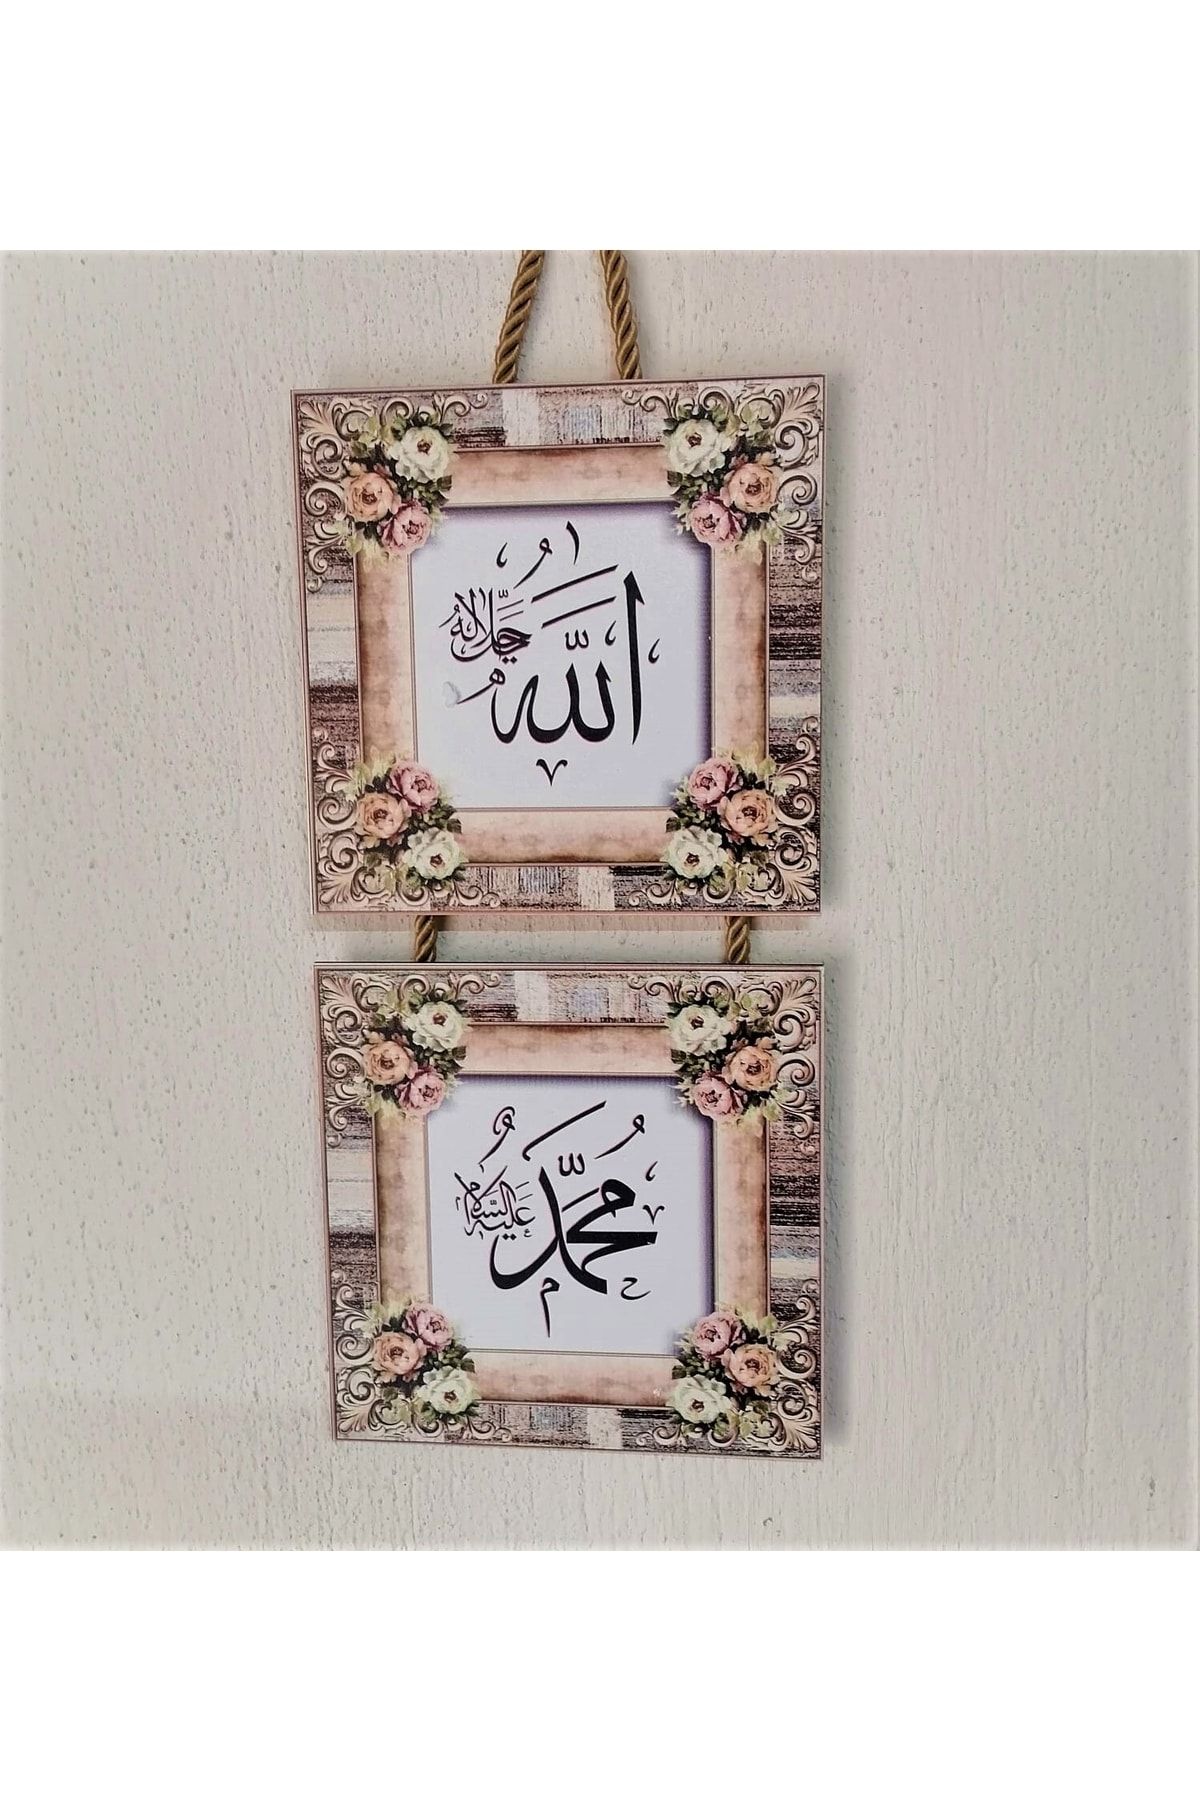 الله جل جلاله
محمد عليه السلام